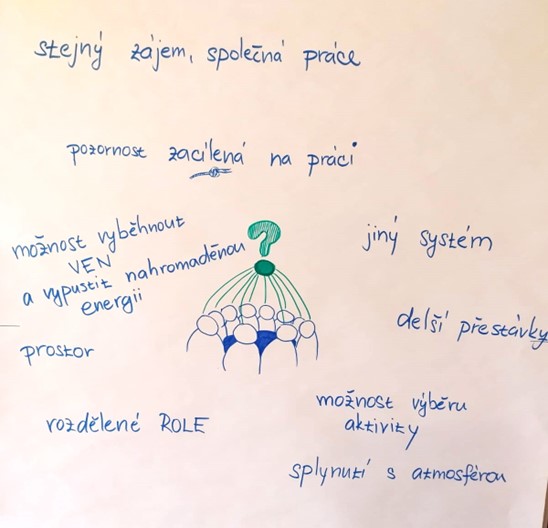 stejný zájem, společná práce
pozornost zacílená na práci
možnost vyběhnout
VEN
a vypustit nahromaděnou
energii
?
jiný systém
delší přestávky
prostor
možnost výběru
aktivity
rozdělené ROLE
splynutí s atmosférou